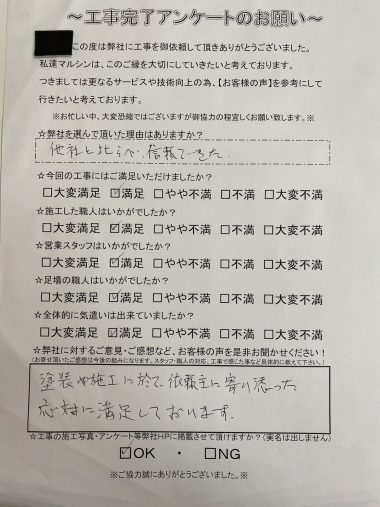 ～工事完了アンケートのお願い～
この度は弊社に工事を御依頼して頂きありがとうございました。
私達マルシンは、このご縁を大切にしていきたいと考えております。
つきましては更なるサービスや技術向上の為、【お客様の声】を参考にして
行きたいと考えております。
※お忙しい中、大変恐縮ではございますが御協力の程宜しくお願い致します。※
☆弊社を選んで頂いた理由はありますか？
他社と比らべ、信頼できた。
☆今回の工事にはご満足いただけましたか？
□大変満足 ☑満足 □やや不満 □不満 □大変不満
☆施工した職人はいかがでしたか？
□大変満足 ☑満足 □やや不満 □不満 □大変不満
☆営業スタッフはいかがでしたか？
□大変満足 ☑満足 □やや不満 □不満 □大変不満
☆足場の職人はいかがでしたか？
□大変満足 ☑満足 □やや不満 □不満 □大変不満
☆全体的に気遣いは出来ていましたか？
□大変満足 ☑満足 □やや不満 □不満 □大変不満
☆弊社に対するご意見・ご感想など、お客様の声を是非お聞かせください！
(お寄せ頂いたご感想は今後の励みになります。スタッフ・職人の対応、工事で感じた事など具体的に教えて下さい。)
塗装や施工に於て、依頼主に寄り添った
応対に満足しております。
☆工事の施工写真・アンケート等弊社HPに掲載させて頂けますか？(実名は出しません)
☑OK ・ □NG
※ご協力誠にありがとうございました。※